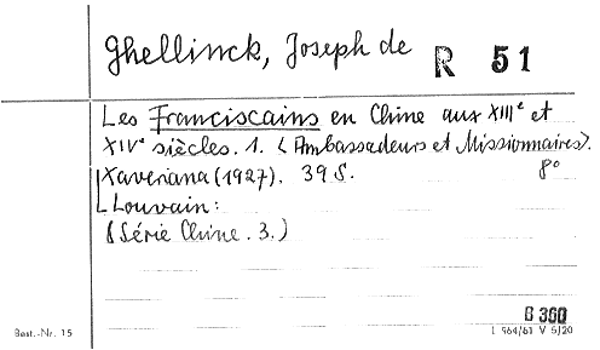 Ghellinck, Joseph de R 51
Les Franciscains en Chine aux XIIIe et
XIVe siècles. 1. <Ambassadeurs et Missionnaires>.
Xaveriana (1927). 39 S. 8°
Louvain:
(Série Chine. 3.)
B 360
Best.-Nr. 15
I 964/61 V 5/20